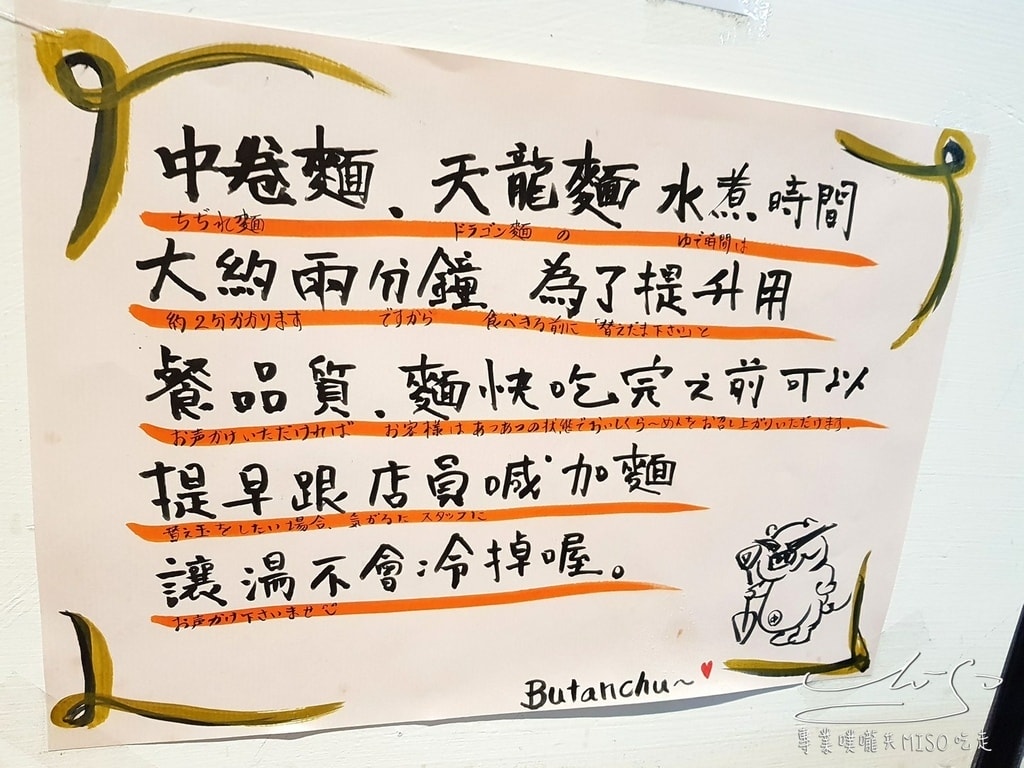 中卷麵、天龍麵 水煮時間
ちぢれ麵 ドラゴン麵 の ゆで時間は
大約兩分鐘 為了提升用
約2分かかります ですから 食べきる前に「替えだま下さい」と
餐品質、麵快吃完之前可以
お声かけいただければ お客様はあつあつの状態でおいしくら〜めんをお召し上がりいただけます。
提早跟店員喊加麵
替え玉をしたい場合、気がるに スタッフに
讓湯不會冷掉喔。
お声かけ下さいませ
Butanchu~
MISO吃走